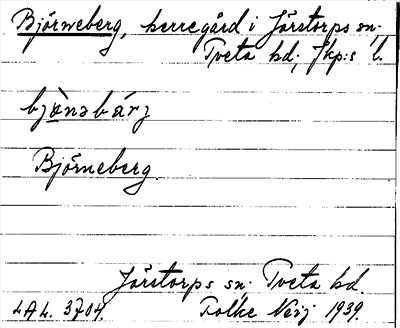 Björneberg, herregård i Järstorps sn.
Tveta hd; Jkp:s l.
bjὰnəbárj
Björneberg.
Järstorps sn. Tveta hd.
LAL. 3704. Folke Neij 1939.